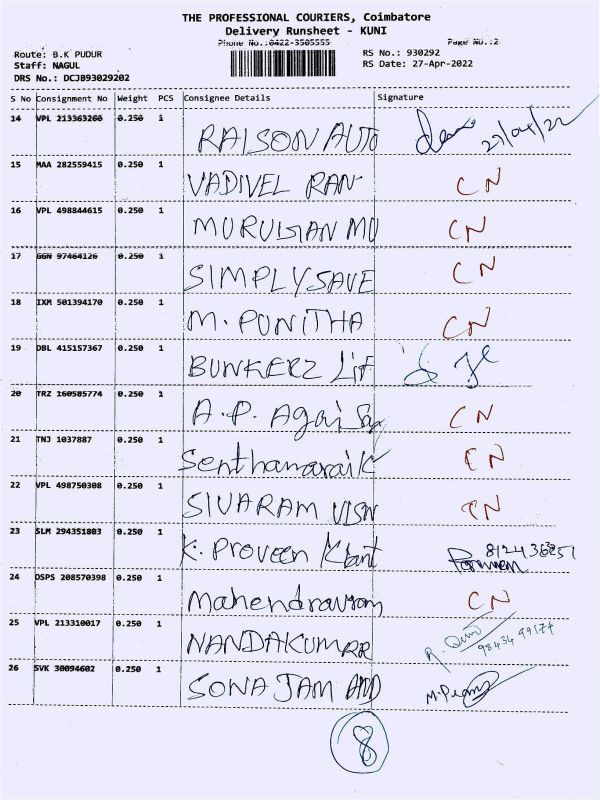 THE PROFESSIONAL COURIERS, Coimbatore
Delivery Runsheet - KUNI
Phone No.:0422-3505555 Page No.:2
Route: B.K PUDUR RS No.: 930292
Staff: NAGUL RS Date: 27-Apr-2022
DRS No.: DCJB93029202
S No Consignment No Weight PCS Consignee Details Signature
14 VPL 213363260 0.250 1 RAISON AUTO 27/04/22
15 MAA 282559415 0.250 1 VADIVEL RAN CN
16 VPL 498844615 0.250 1 MURUGAN MU CN
17 GGN 97464126 0.250 1 SIMPLYSAVE CN
18 IXM 501394170 0.250 1 M. PUNITHA CN
19 DBL 415157367 0.250 1 BUNKERZ Lif
20 TRZ 160585774 0.250 1 A.P. Agai CN
21 TNJ 1037887 0.250 1 Senthamarai K CN
22 VPL 498750308 0.250 1 SIVARAM VISW CN
23 SLM 294351803 0.250 1 K. Proveen
24 DSPS 208570398 0.250 1 CN
25 VPL 213310017 0.250 1 NANDAKUMRR 98434 99174
26 SVK 30094602 0.250 1 SONA JAM AND
8